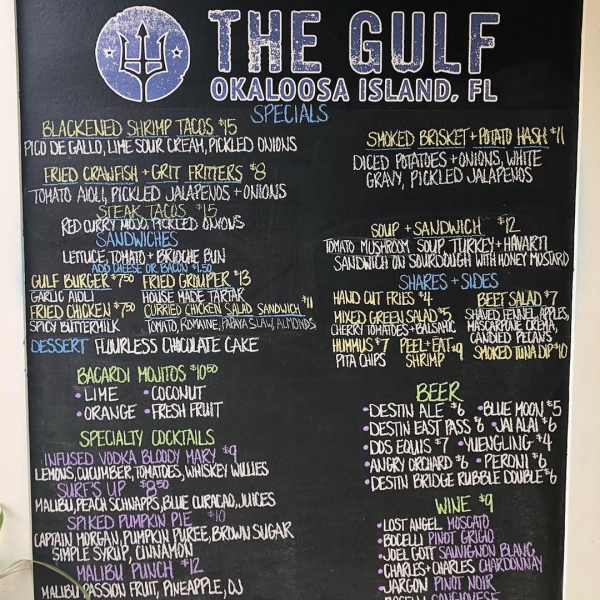 THE GULF
OKALOOSA ISLAND, FL
SPECIALS
BLACKENED SHRIMP TACOS $15
PICO DE GALLO, LIME SOUR CREAM, PICKLED ONIONS
FRIED CRAWFISH + GRIT FRITTERS $8
TOMATO AIOLI, PICKLED JALAPENOS + ONIONS
STEAK TACOS $15
RED CURRY MOJO, PICKLED ONIONS
SMOKED BRISKET + POTATO HASH $11
DICED POTATOES + ONIONS, WHITE
GRAVY, PICKLED JALAPENOS
SOUP + SANDWICH $12
TOMATO MUSHROOM SOUP, TURKEY + HAVARTI
SANDWICH ON SOURDOUGH WITH HONEY MUSTARD
SANDWICHES
LETTUCE, TOMATO + BRIOCHE BUN
ADD CHEESE OR BACON $1.50
GULF BURGER $7.50
GARLIC AIOLI
FRIED GROUPER $13
HOUSE MADE TARTAR
FRIED CHICKEN $7.50
SPICY BUTTERMILK
CURRIED CHICKEN SALAD SANDWICH $11
TOMATO, ROMAINE, PAPAYA SLAW, ALMONDS
DESSERT FLOURLESS CHOCOLATE CAKE
SHARES + SIDES
HAND CUT FRIES $4
MIXED GREEN SALAD $5
CHERRY TOMATOES + BALSAMIC
HUMMUS $7
PITA CHIPS
PEEL + EAT $9
SHRIMP
BEET SALAD $7
SHAVED FENNEL, APPLES,
MASCARPONE CREMA,
CANDIED PECANS
SMOKED TUNA DIP $10
BACARDI MOJITOS $10.50
• LIME • COCONUT
• ORANGE • FRESH FRUIT
SPECIALTY COCKTAILS
INFUSED VODKA BLOODY MARY $9
LEMONS, CUCUMBER, TOMATOES, WHISKEY WILLIES
SURF'S UP $8.50
MALIBU, PEACH SCHNAPPS, BLUE CURACAO, JUICES
SPIKED PUMPKIN PIE $10
CAPTAIN MORGAN, PUMPKIN PUREE, BROWN SUGAR
SIMPLE SYRUP, CINNAMON
MALIBU PUNCH $12
MALIBU PASSION FRUIT, PINEAPPLE, OJ
BEER
• DESTIN ALE $6 • BLUE MOON $5
• DESTIN EAST PASS $8 • JAI ALAI $6
• DOS EQUIS $7 • YUENGLING $4
• ANGRY ORCHARD $6 • PERONI $6
• DESTIN BRIDGE RUBBLE DOUBLE $6
WINE $9
• LOST ANGEL MOSCATO
• BOCELLI PINOT GRIGIO
• JOEL GOTT SAUVIGNON BLANC
• CHARLES + CHARLES CHARDONNAY
• JARGON PINOT NOIR
BOCELLI SANGIOVESE